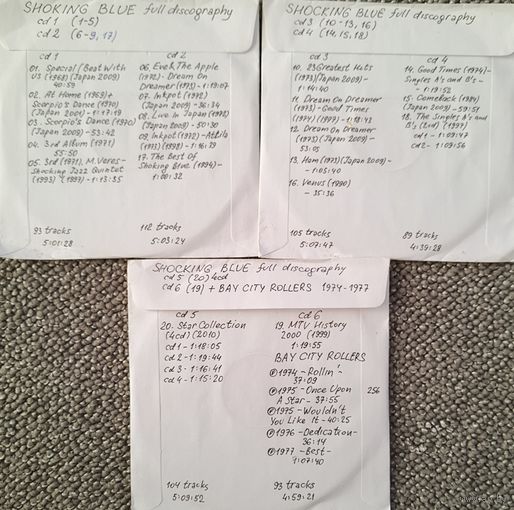 SHOKING BLUE full discography
cd 1 (1-5)
cd 2 (6-9, 17)
cd 1
01. Special/Beat With
US (1968)(Japan 2009)
40:59
02. At Home (1969)+
Scorpio's Dance (1970)
(Japan 2009) - 1:17:19
03. Scorpio's Dance (1970)
(Japan 2009) - 53:42
04. 3rd Album (1971)
55:50
05. 3rd (1971). M. Veres -
Shocking Jazz Quintet
(1993) (1997) - 1:13:35
93 tracks
5:01:28
cd 2
06. Eve & The Apple
(1972) - Dream On
Dreamer (1973) - 1:19:07
07. Inkpot (1972)
(Japan 2009) - 36:34
08. Live In Japan (1972)
(Japan 2009) - 50:30
09. Inkpot (1972) - Attila
(1972) (1998) - 1:16:29
17. The Best Of
Shoking Blue (1994) -
1:00:32
112 tracks
5:03:24
SHOCKING BLUE full discography
cd 3 (10-13, 16)
cd 4 (14, 15, 18)
cd 3
10. 23 Greatest Hits
(1973)(Japan 2009) -
1:14:40
11. Dream On Dreamer
(1973) - Good Times
(1974) (1999) - 1:18:43
12. Dream On Dreamer
(1973)(Japan 2009) -
53:05
13. Ham (1973)(Japan 2009) -
- 1:05:40
16. Venus (1990)
- 35:36
105 tracks
5:07:47
cd 4
14. Good Times (1974) -
Singles A's and B's -
- 1:19:52
15. Comeback (1984)
(Japan 2009) - 59:51
18. The Singles A's and
B's (2cd) (1997)
cd 1 - 1:09:47
cd 2 - 1:09:56
89 tracks
4:39:28
SHOCKING BLUE full discography
cd 5 (20) 4cd
cd 6 (19) + BAY CITY ROLLERS 1974-1977
cd 5
20. Star Collection
(4cd) (2010)
cd 1 - 1:18:05
cd 2 - 1:19:44
cd 3 - 1:16:41
cd 4 - 1:15:20
104 tracks
5:09:52
cd 6
19. MTV History
2000 (1999)
1:19:55
BAY CITY ROLLERS
℗ 1974 - Rollin' -
37:09
℗ 1975 - Once Upon
A Star - 37:55
℗ 1975 - Wouldn't
You Like It - 40:25
℗ 1976 - Dedication -
36:14
℗ 1977 - Best -
1:07:40
93 tracks
4:59:21
256